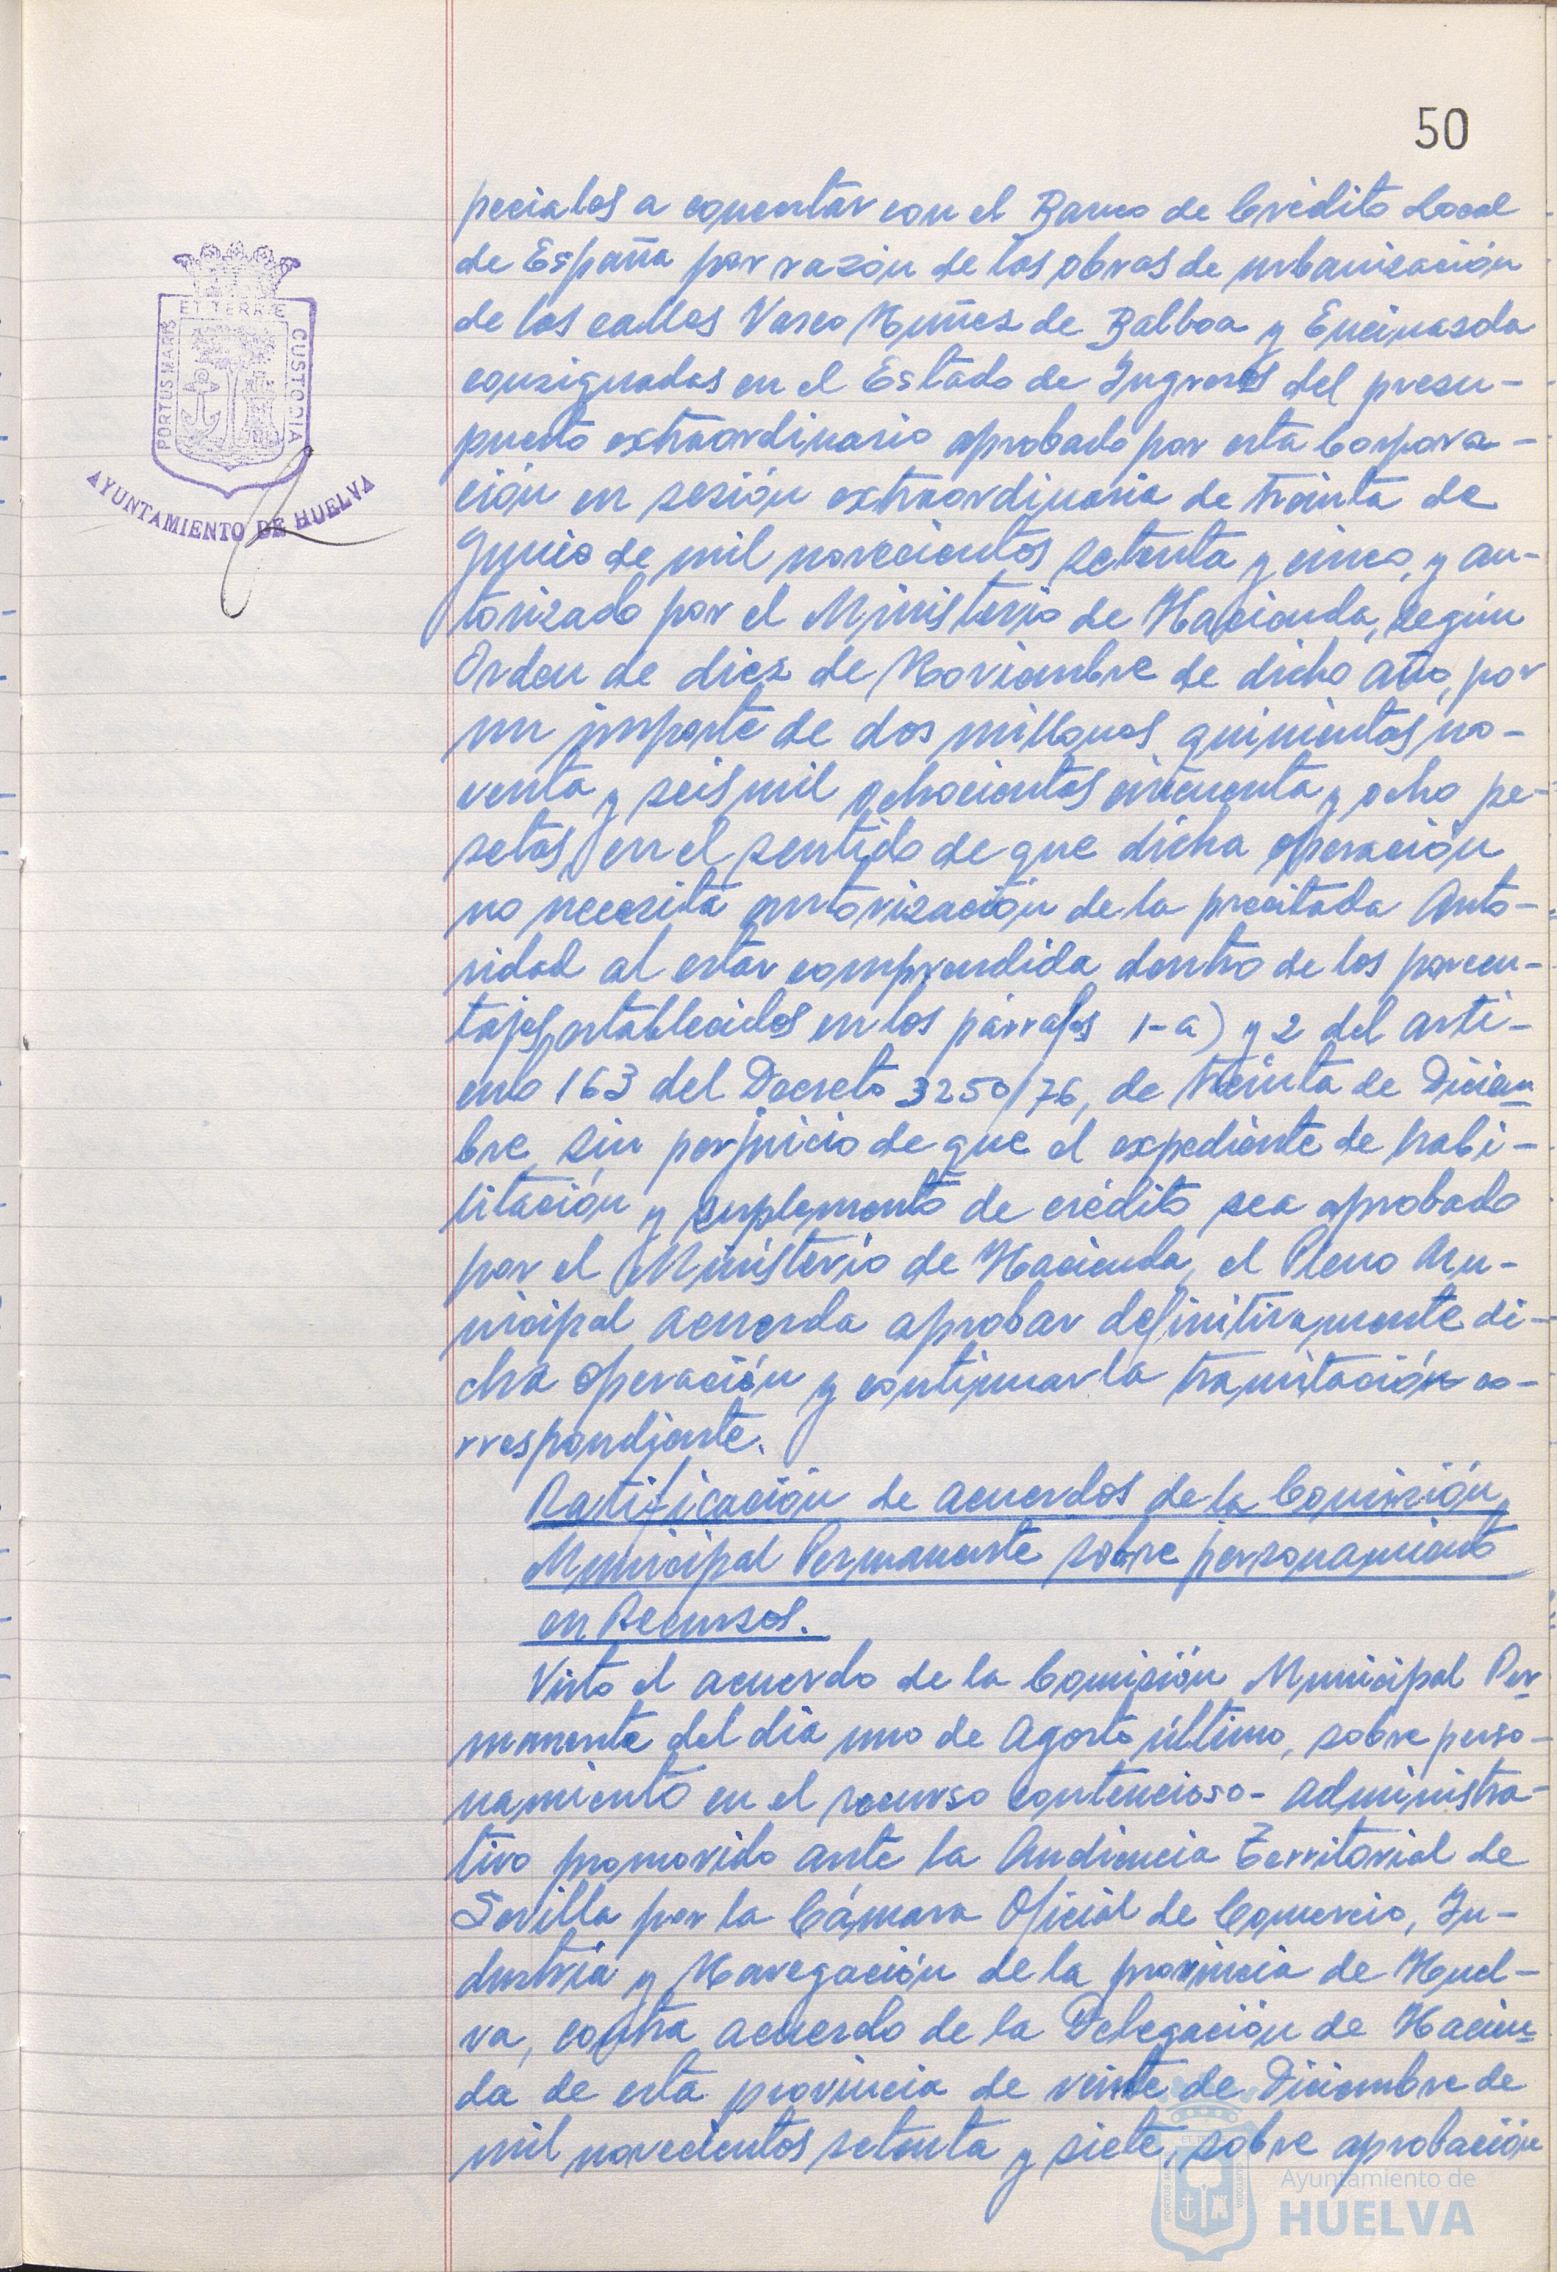 50
PORTUS MARIS
ET TERRÆ
CUSTODIA
AYUNTAMIENTO DE HUELVA
peciales a concertar con el Banco de Crédito Local
de España por razón de las obras de urbanización
de las calles Vasco Núñez de Balboa y Encinasola
consignadas en el Estado de Ingresos del presu-
puesto extraordinario aprobado por esta Corpora-
ción en sesión extraordinaria de treinta de
Junio de mil novecientos setenta y cinco, y au-
torizado por el Ministerio de Hacienda, según
Orden de diez de Noviembre de dicho año, por
un importe de dos millones quinientas no-
venta y seis mil ochocientas cincuenta y ocho pe-
setas, en el sentido de que dicha operación
no necesita autorización de la precitada Auto-
ridad al estar comprendida dentro de los porcen-
tajes establecidos en los párrafos 1-a) y 2 del artí-
culo 163 del Decreto 3250/76, de treinta de Diciem
bre, sin perjuicio de que el expediente de habi-
litación y suplemento de crédito sea aprobado
por el Ministerio de Hacienda, el Pleno Mu-
nicipal acuerda aprobar definitivamente di-
cha operación y continuar la tramitación co-
rrespondiente.
Ratificación de acuerdos de la Comisión
Municipal Permanente sobre personamiento
en Recursos.
Visto el acuerdo de la Comisión Municipal Per
manente del día uno de Agosto último, sobre perso-
namiento en el recurso contencioso-administra-
tivo promovido ante la Audiencia Territorial de
Sevilla por la Cámara Oficial de Comercio, In-
dustria y Navegación de la provincia de Huel-
va, contra acuerdo de la Delegación de Hacien
da de esta provincia de veinte de Diciembre de
mil novecientos setenta y siete, sobre aprobación
Ayuntamiento de
HUELVA